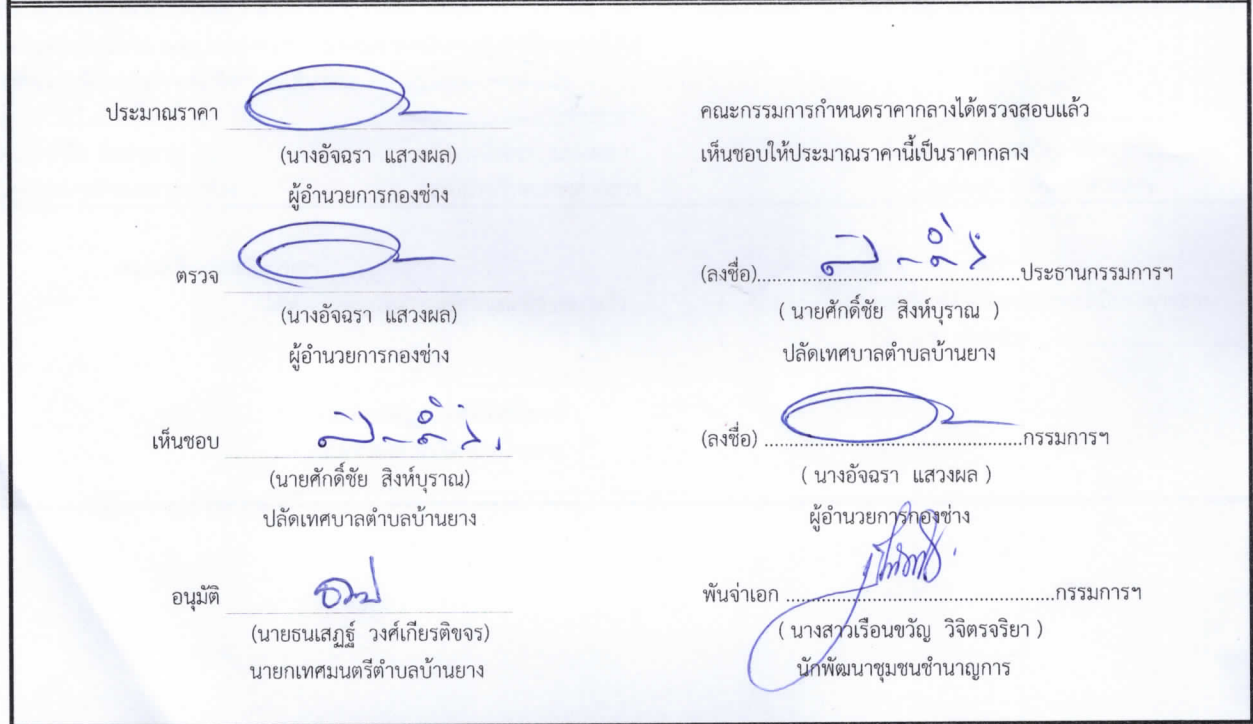 ประมาณราคา
(นางอัจฉรา แสวงผล)
ผู้อำนวยการกองช่าง
ตรวจ
(นางอัจฉรา แสวงผล)
ผู้อำนวยการกองช่าง
เห็นชอบ
(นายศักดิ์ชัย สิงห์บุราณ)
ปลัดเทศบาลตำบลบ้านยาง
อนุมัติ
(นายธนเสฏฐ์ วงศ์เกียรติขจร)
นายกเทศมนตรีตำบลบ้านยาง
คณะกรรมการกำหนดราคากลางได้ตรวจสอบแล้ว
เห็นชอบให้ประมาณราคานี้เป็นราคากลาง
(ลงชื่อ)................................................ประธานกรรมการฯ
( นายศักดิ์ชัย สิงห์บุราณ )
ปลัดเทศบาลตำบลบ้านยาง
(ลงชื่อ) ................................................กรรมการฯ
( นางอัจฉรา แสวงผล )
ผู้อำนวยการกองช่าง
พันจ่าเอก ................................................กรรมการฯ
( นางสาวเรือนขวัญ วิจิตรจริยา )
นักพัฒนาชุมชนชำนาญการ